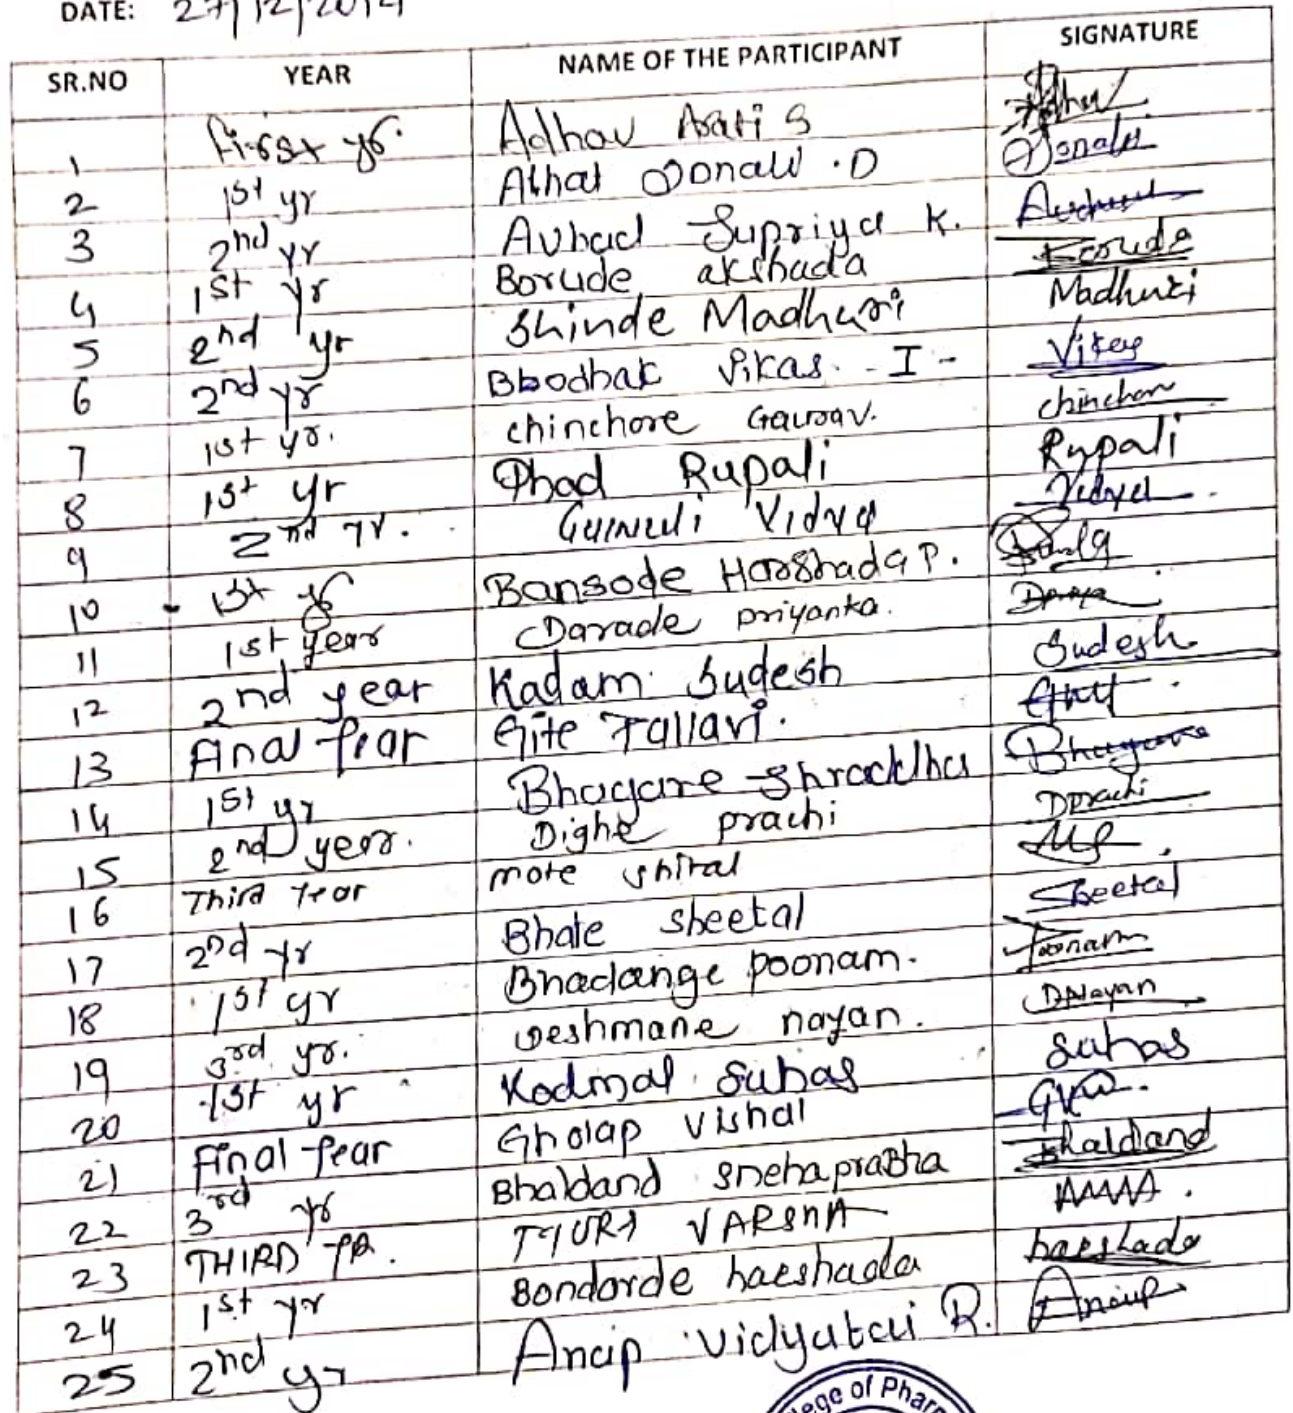 DATE: 27/12/2014
SR.NO YEAR NAME OF THE PARTICIPANT SIGNATURE
1 First yr. Adhav Arati S
2 1st yr Alhat Sonali .D Sonali
3 2nd yr Avhad Supriya K.
4 1st yr Borude akshada Borude
5 2nd yr Shinde Madhuri Madhuri
6 2nd yr Bbodhak Vikas. I - Vikas
7 1st yr. chinchore Gaurav. chinchore
8 1st yr Phad Rupali Rupali
9 2nd yr. Vidya Vidya
10 1st yr Bansode Harshada P.
11 1st year Darade priyanka.
12 2nd year Kadam Sudesh Sudesh
13 Final Year Gite Pallavi.
14 1st yr Bhagare Shraddha Bhagare
15 2nd year. Dighe prachi Dprachi
16 Third Year more shital
17 2nd yr Bhate sheetal Sheetal
18 1st yr Bhadange poonam. Poonam
19 3rd yr. Deshmane nayan. DNayan
20 1st yr Kadmal Suhas Suhas
21 Final Year Gholap Vishal
22 3rd yr Bhaldand snehaprabha Bhaldand
23 THIRD YR. VARSHA
24 1st yr Bondarde harshada harshada
25 2nd yr Anap Vidyutai R. Anap
ege of Phar